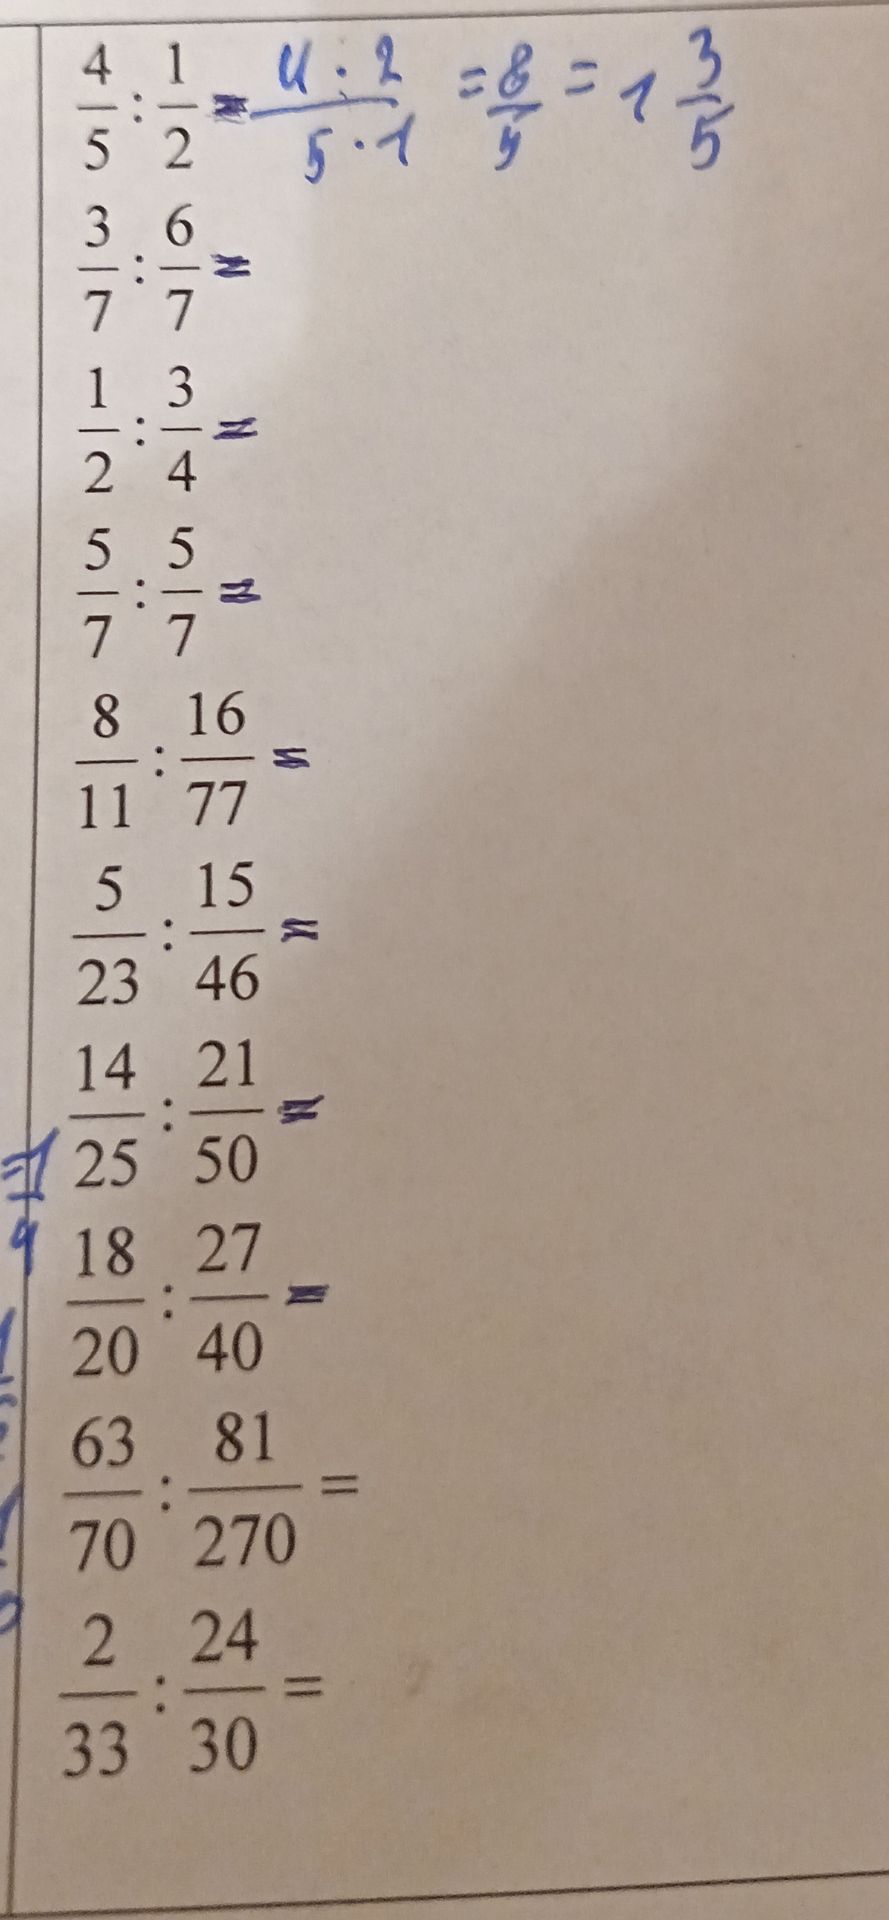 4/5 : 1/2 = 4 · 2 / 5 · 1 = 8/5 = 1 3/5
3/7 : 6/7 =
1/2 : 3/4 =
5/7 : 5/7 =
8/11 : 16/77 =
5/23 : 15/46 =
14/25 : 21/50 =
18/20 : 27/40 =
63/70 : 81/270 =
2/33 : 24/30 =